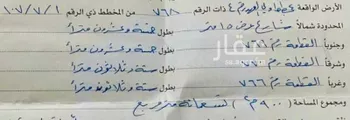 الأرض الواقعة ذات الرقم ٧٦٨ من المخطط ذي الرقم ١٠٧/٧/١
المحدودة شمالاً شارع عرض ١٥ متر بطول خمسة وعشرون متراً
وجنوباً القطعة رقم ٧٦٦ بطول خمسة وعشرون متراً
وشرقاً القطعة رقم بطول ستة وثلاثون متراً
وغرباً القطعة رقم ٧٦٦ بطول ستة وثلاثون متراً
ومجموع المساحة (٩٠٠م٢) تسعمائة متر مربع
عقار